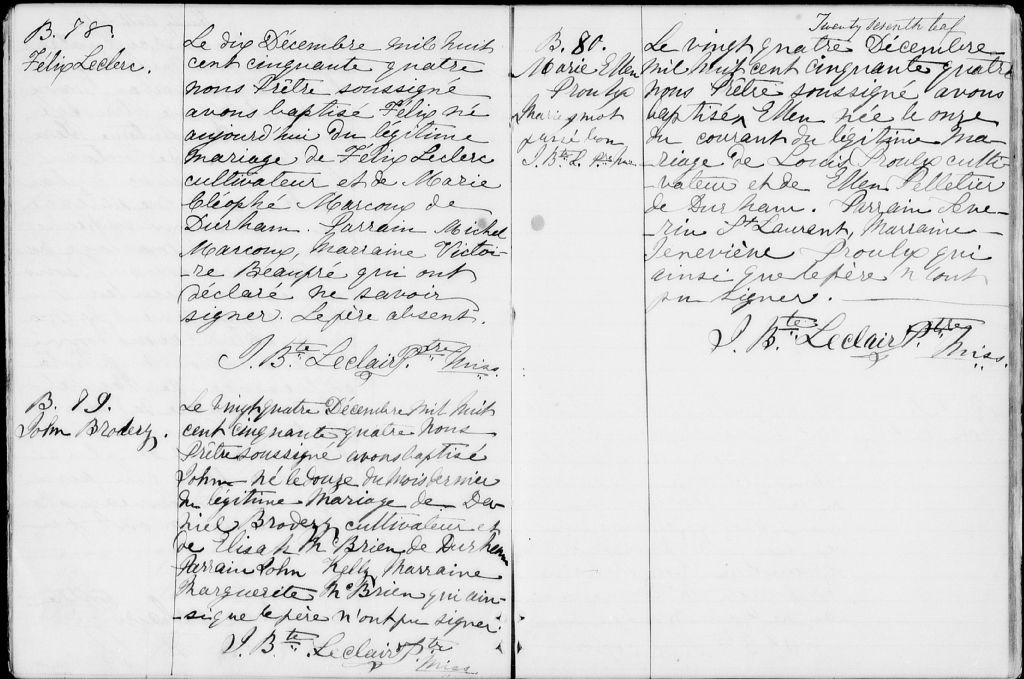 B. 78.
Félix Leclerc.
Le dix Décembre mil huit
cent cinquante quatre
nous Prêtre soussigné
avons baptisé Félix né
aujourd'hui du légitime
mariage de Félix Leclerc
cultivateur et de Marie
Cléophé Marcoux de
Durham. Parrain Michel
Marcoux, Marraine Victoi-
-re Beaupré qui ont
déclaré ne savoir
signer. Le père absent.
J. Bte. Leclair Ptre. Miss.
B. 79.
John Brodery.
Le vingt quatre Décembre mil huit
cent cinquante quatre nous
Prêtre soussigné avons baptisé
John né le douze du mois dernier
du légitime mariage de Da-
niel Brodery cultivateur et
de Elisa McBrien de Durham
Parrain John Kelly Marraine
Marguerite McBrien qui ain-
-si que le père n'ont pu signer.
J. Bte. Leclair Ptre
Miss.
Twenty seventh leaf
B. 80.
Marie Ellen
Proulx
Marie, mot
passé bon
J. Bte L. Ptre Miss
Le vingt quatre Décembre
mil huit cent cinquante quatre
nous Prêtre soussigné avons
baptisé Ellen née le onze
du courant du légitime ma-
riage de Louis Proulx culti-
vateur et de Ellen Pelletier
de Durham. Parrain Séve-
rin St Laurent, Marraine
Geneviève Proulx qui
ainsi que le père n'ont
pu signer.
J. Bte. Leclair Ptre
Miss.